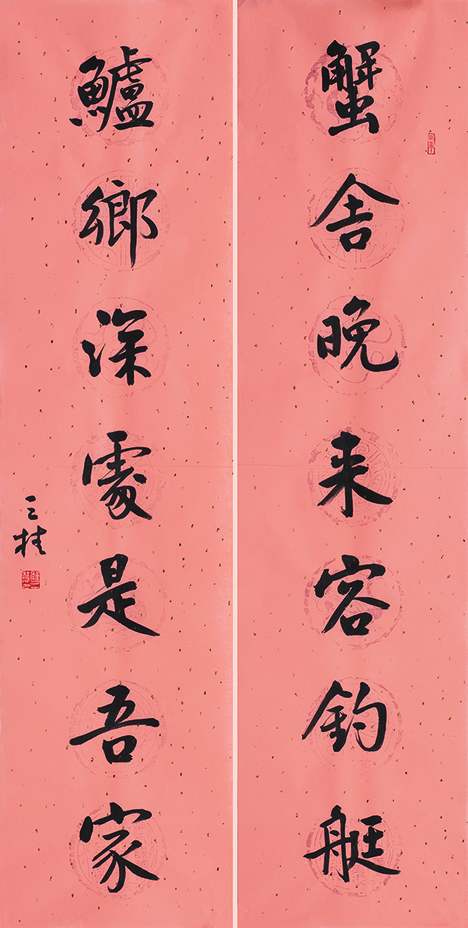 蟹舍晚来容釣艇
鱸鄉深處是吾家